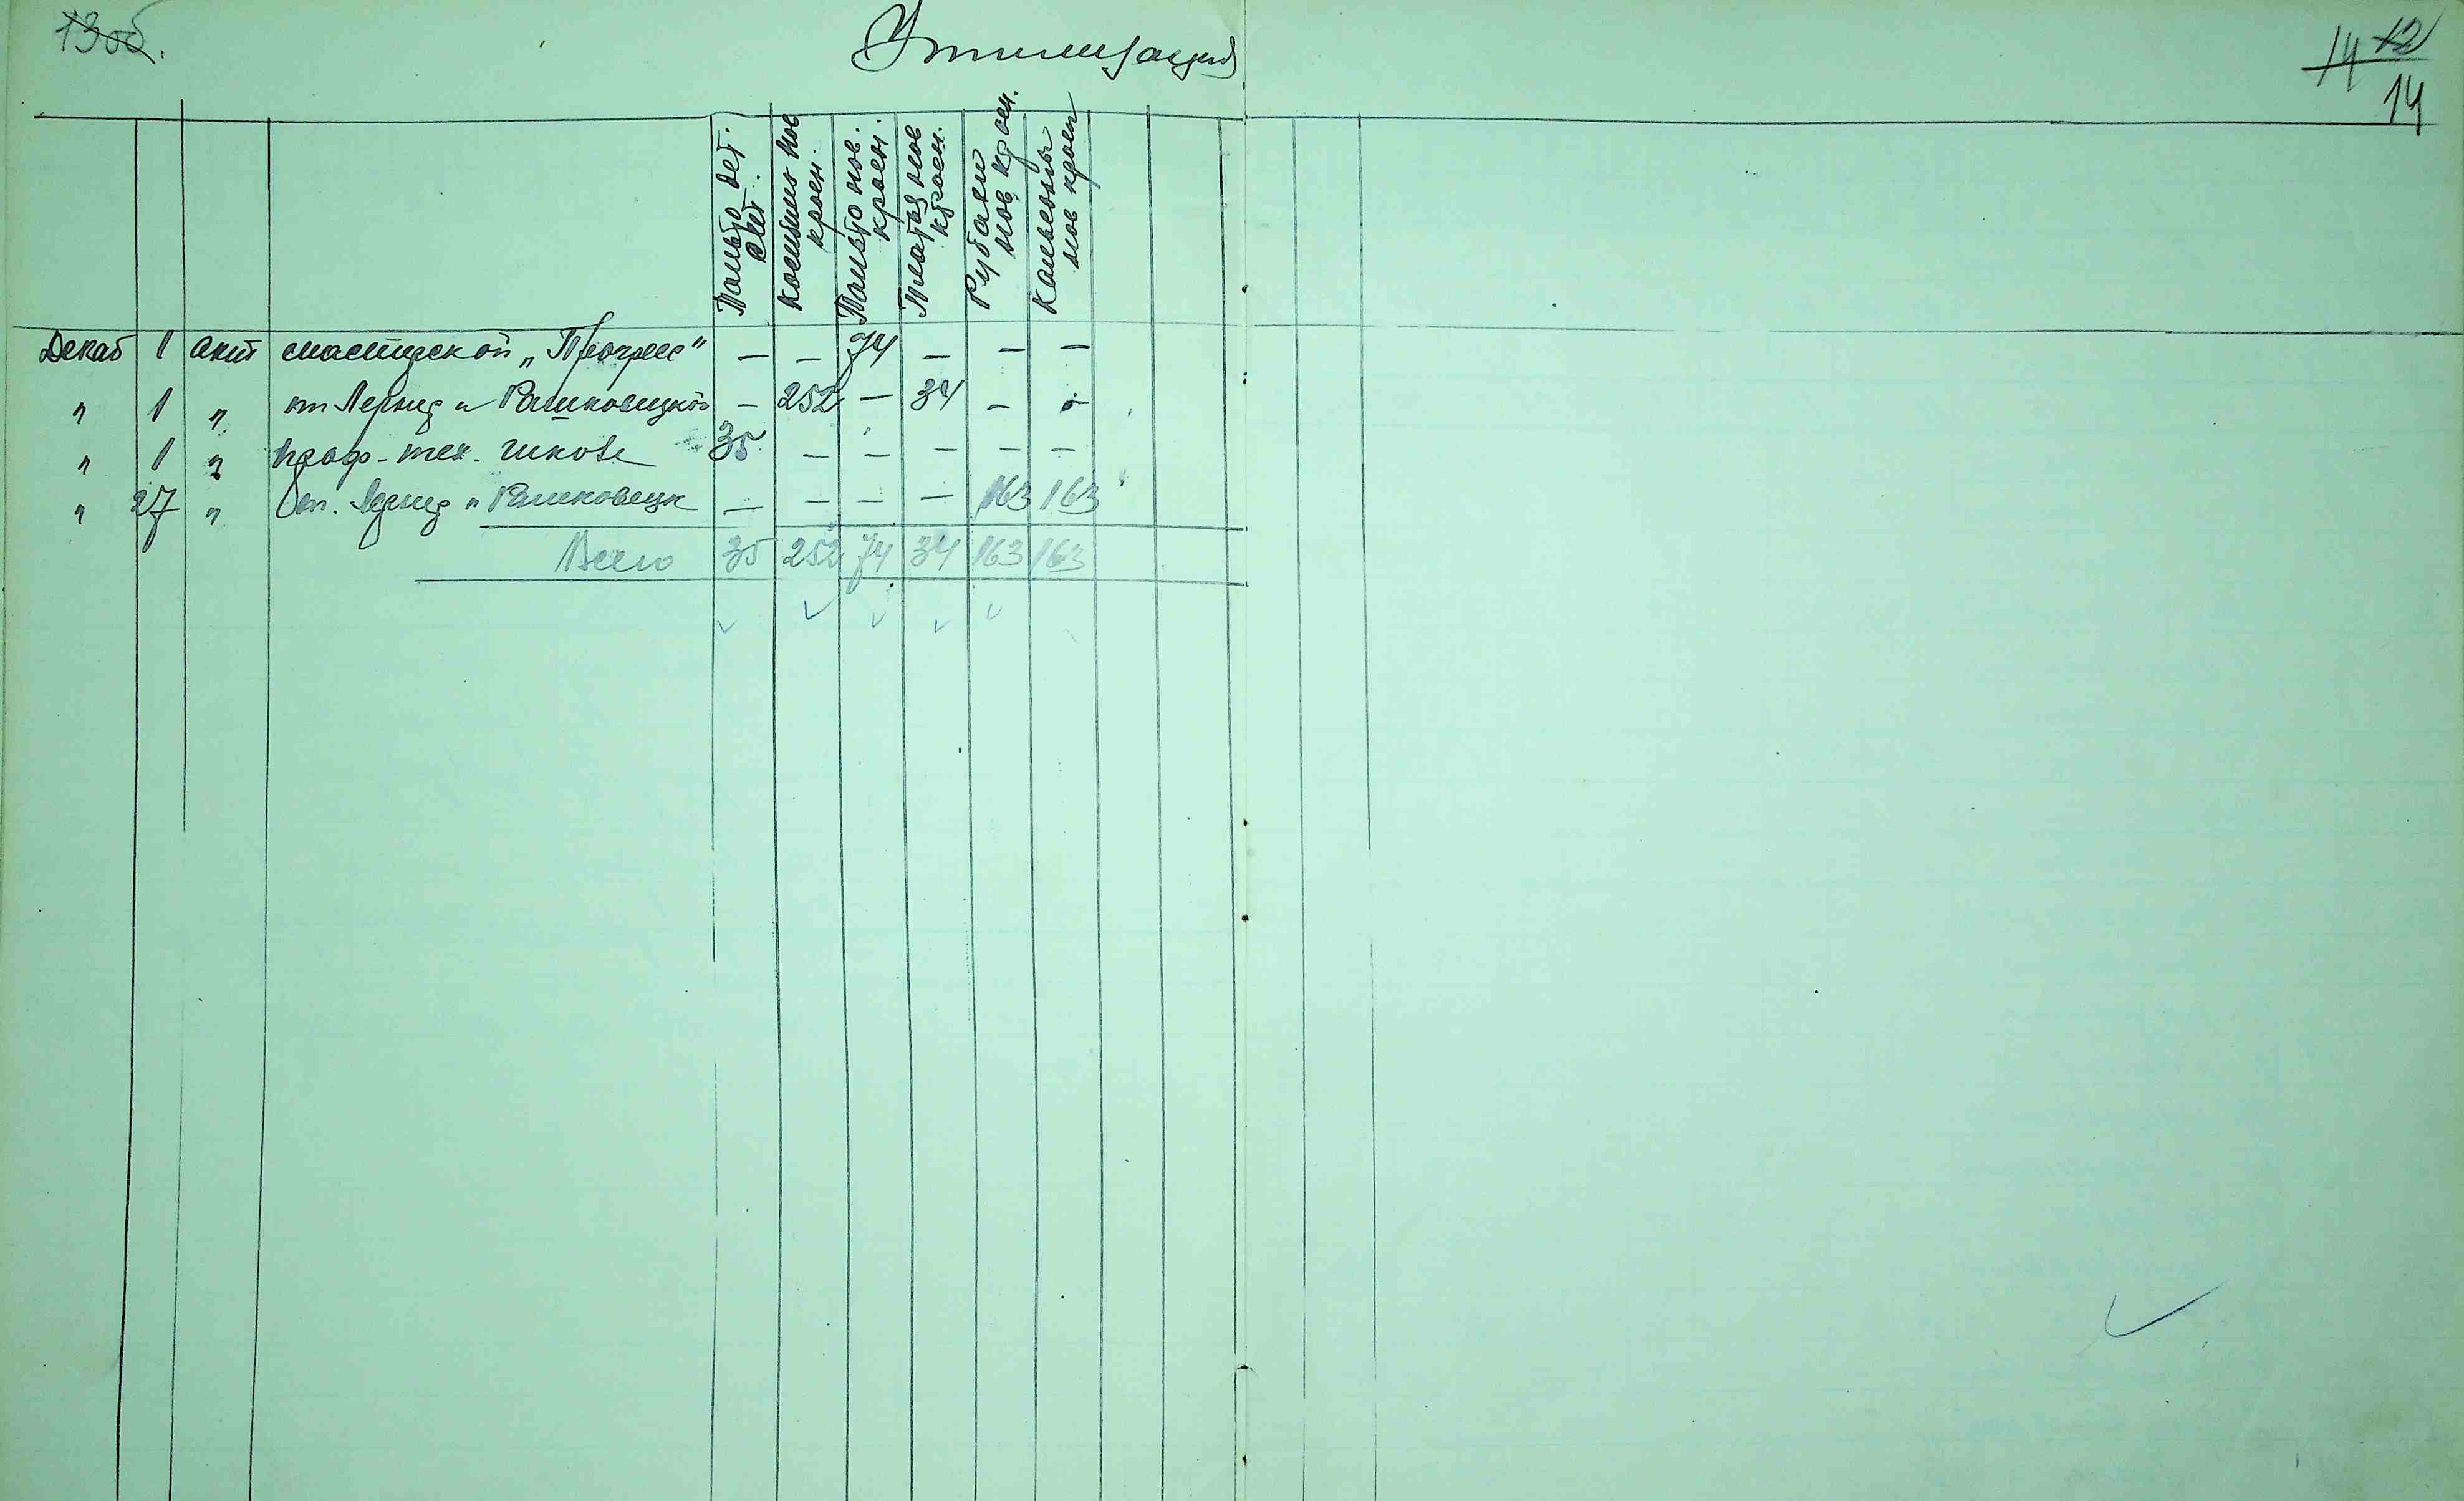 13 об.
Утилизация
14 12
14
Пальто дет. 
Костюмы нов кроен.
Пальто нов. кроен.
Платья нов кроен.
Рубахи нов кроен.
Кальсоны нов кроен
Декаб 1 Акт мастерской „Прогресс" — — 74 — — —
" 1 " от Лернер и Рашковецкой — 252 — 34 — —
" 1 " Проф-тех. школе 35 — — — — —
" 27 " От. Лернер и Рашковецк — — — — 163 163
Всего 35 252 74 34 163 163